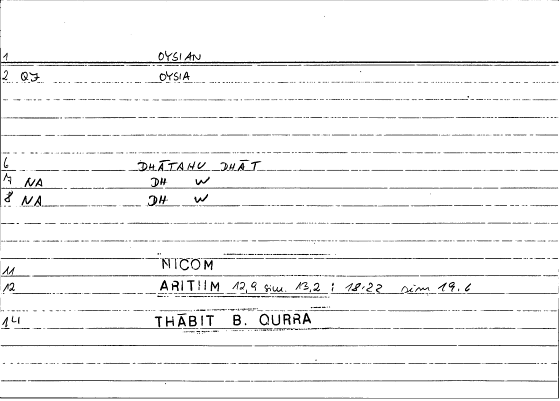 1 OYSIAN
2 QJ OYSIA
6 DHĀTAHU DHĀT
7 NA DH W
8 NA DH W
11 NICOM
12 ARITHM 12,9 sim. 13,2 ; 18.22 sim 19.6
14 THĀBIT B. QURRA